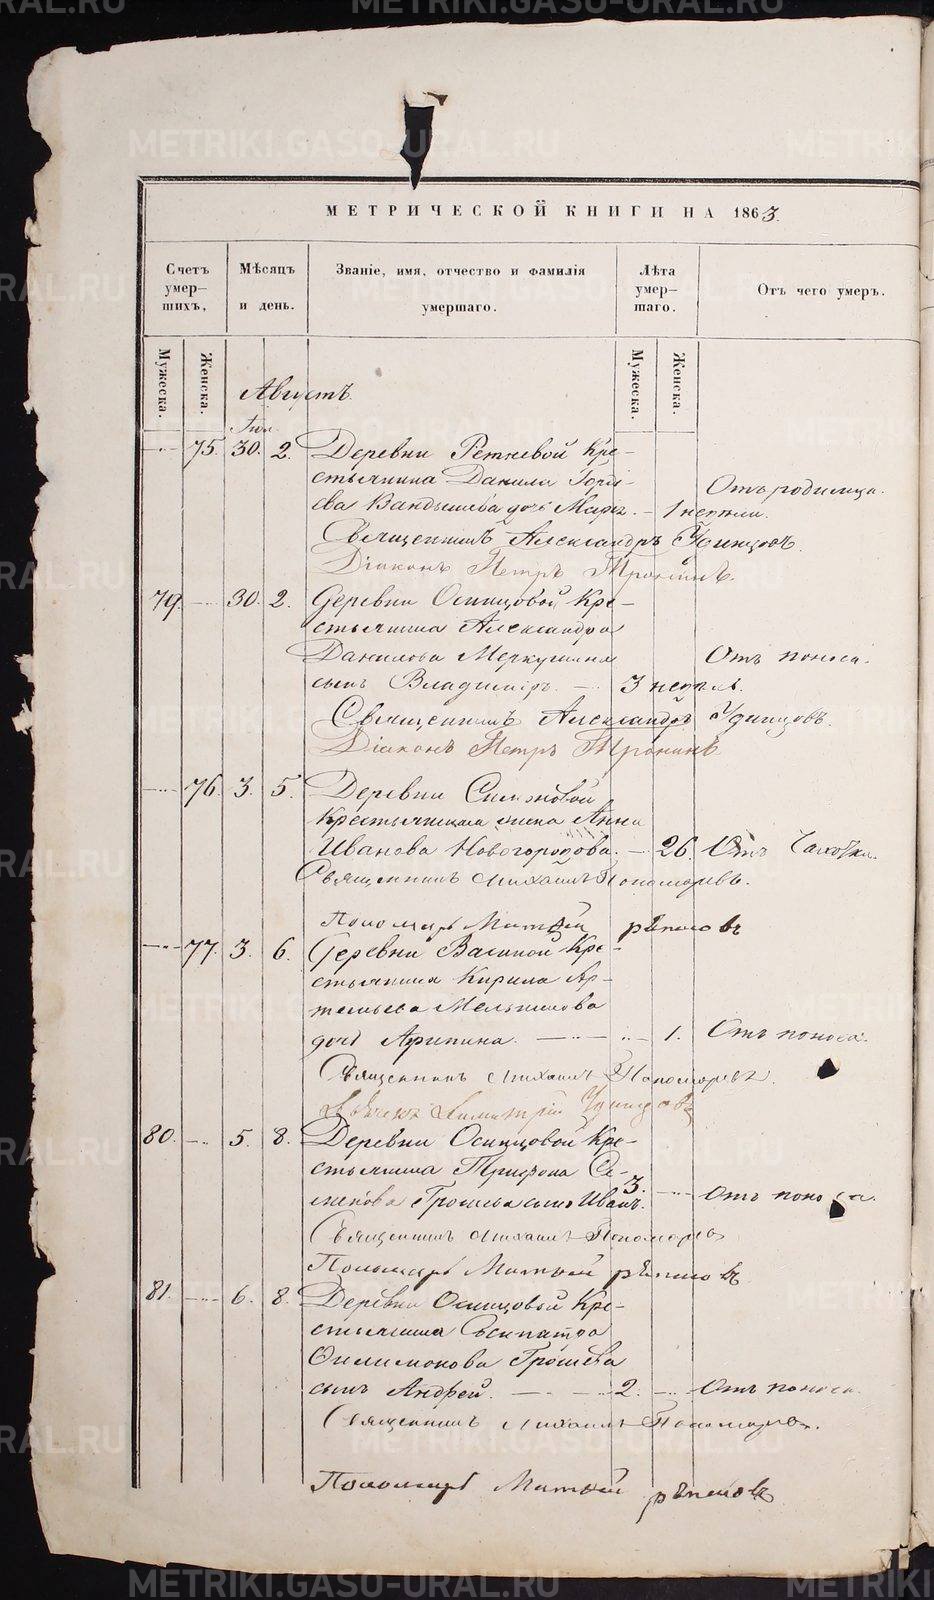 METRIKI.GASO-URAL.RU
МЕТРИЧЕСКОЙ КНИГИ НА 1863.
Счетъ умер-шихъ,
Мѣсяцъ и день.
Званіе, имя, отчество и фамилія умершаго.
Лѣта умер-шаго.
Отъ чего умеръ.
Мужеска.
Женска.
Мужеска.
Женска.
Августъ.
75. 30. 2. Деревни Ретневой Кре-
стьянина Данила Горде-
ева Вандышева дочь Марія. – 1 недѣли. Отъ родимца.
Священникъ Александръ Удинцовъ.
Діаконъ Петръ Тронинъ.
79. 30. 2. Деревни Осинцовой Кре-
стьянина Александра
Данилова Меркушина
сынъ Владиміръ. – 3 недѣль. Отъ поноса.
Священникъ Александръ Удинцовъ.
Діаконъ Петръ Тронинъ.
76. 3. 5. Деревни
Крестьянина жена Анна
Иванова Новогородова. – 26. Отъ Чахотки.
Священникъ Михаилъ Пономаревъ.
Пономарь Матвѣй Рѣпинъ
77. 3. 6. Деревни Васиной Кре-
стьянина Кирила Ар-
темьева Мельникова
дочь Агрипина. – 1. Отъ поноса.
Священникъ Михаилъ Пономаревъ.
Димитрій Удинцовъ
80. 5. 8. Деревни Осинцовой Кре-
стьянина Трифона Се-
менова Грошева сынъ Иванъ. 3. Отъ поноса.
Священникъ Михаилъ Пономаревъ
Пономарь Матвѣй
81. 6. 8. Деревни Осинцовой Кре-
стьянина Сосипатра
Филимонова Грошева
сынъ Андрей. – 2. Отъ поноса.
Священникъ Михаилъ Пономаревъ.
Пономарь Матвѣй